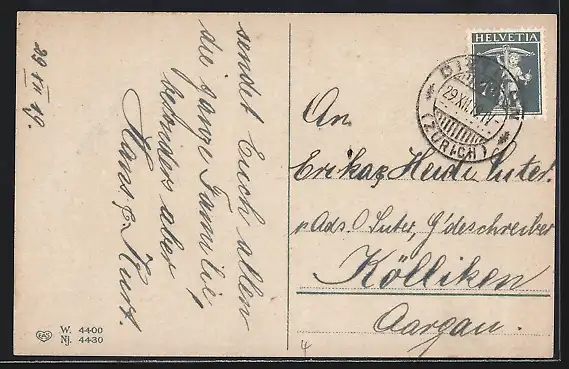 29 XII 19.
sendet Euch allen
die ganze Familie,
besonders aber
Hans & Kurt.
W. 4400
Nj. 4430
HELVETIA
29.XII.19.IV-
(ZÜRICH)
An
Erika & Heidi Suter.
Ads. O Suter, G'deschreiber
Kölliken
Aargau.